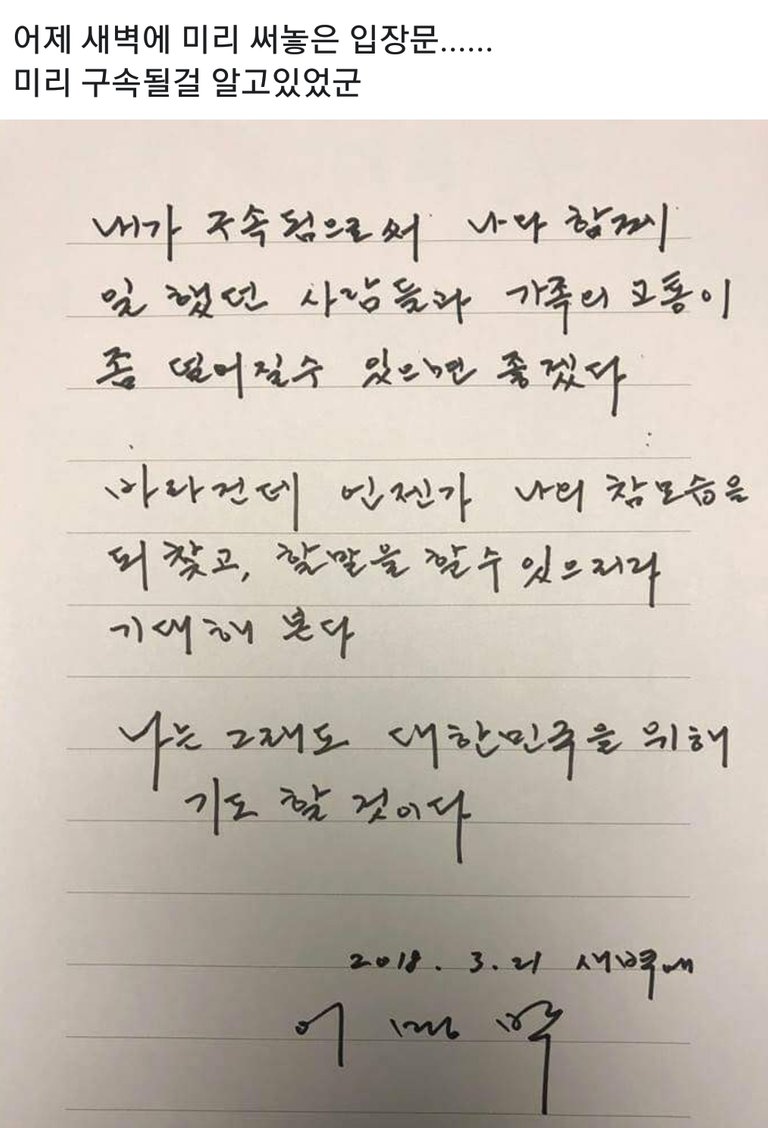 어제 새벽에 미리 써놓은 입장문......
미리 구속될걸 알고있었군
내가 구속됨으로써 나와 함께
일 했던 사람들과 가족의 고통이
좀 덜어질수 있으면 좋겠다
바라건데 언젠가 나의 참모습을
되찾고, 할말을 할 수 있으리라
기대해 본다
나는 그래도 대한민국을 위해
기도 할 것이다
2018. 3. 21 새벽에
이명박